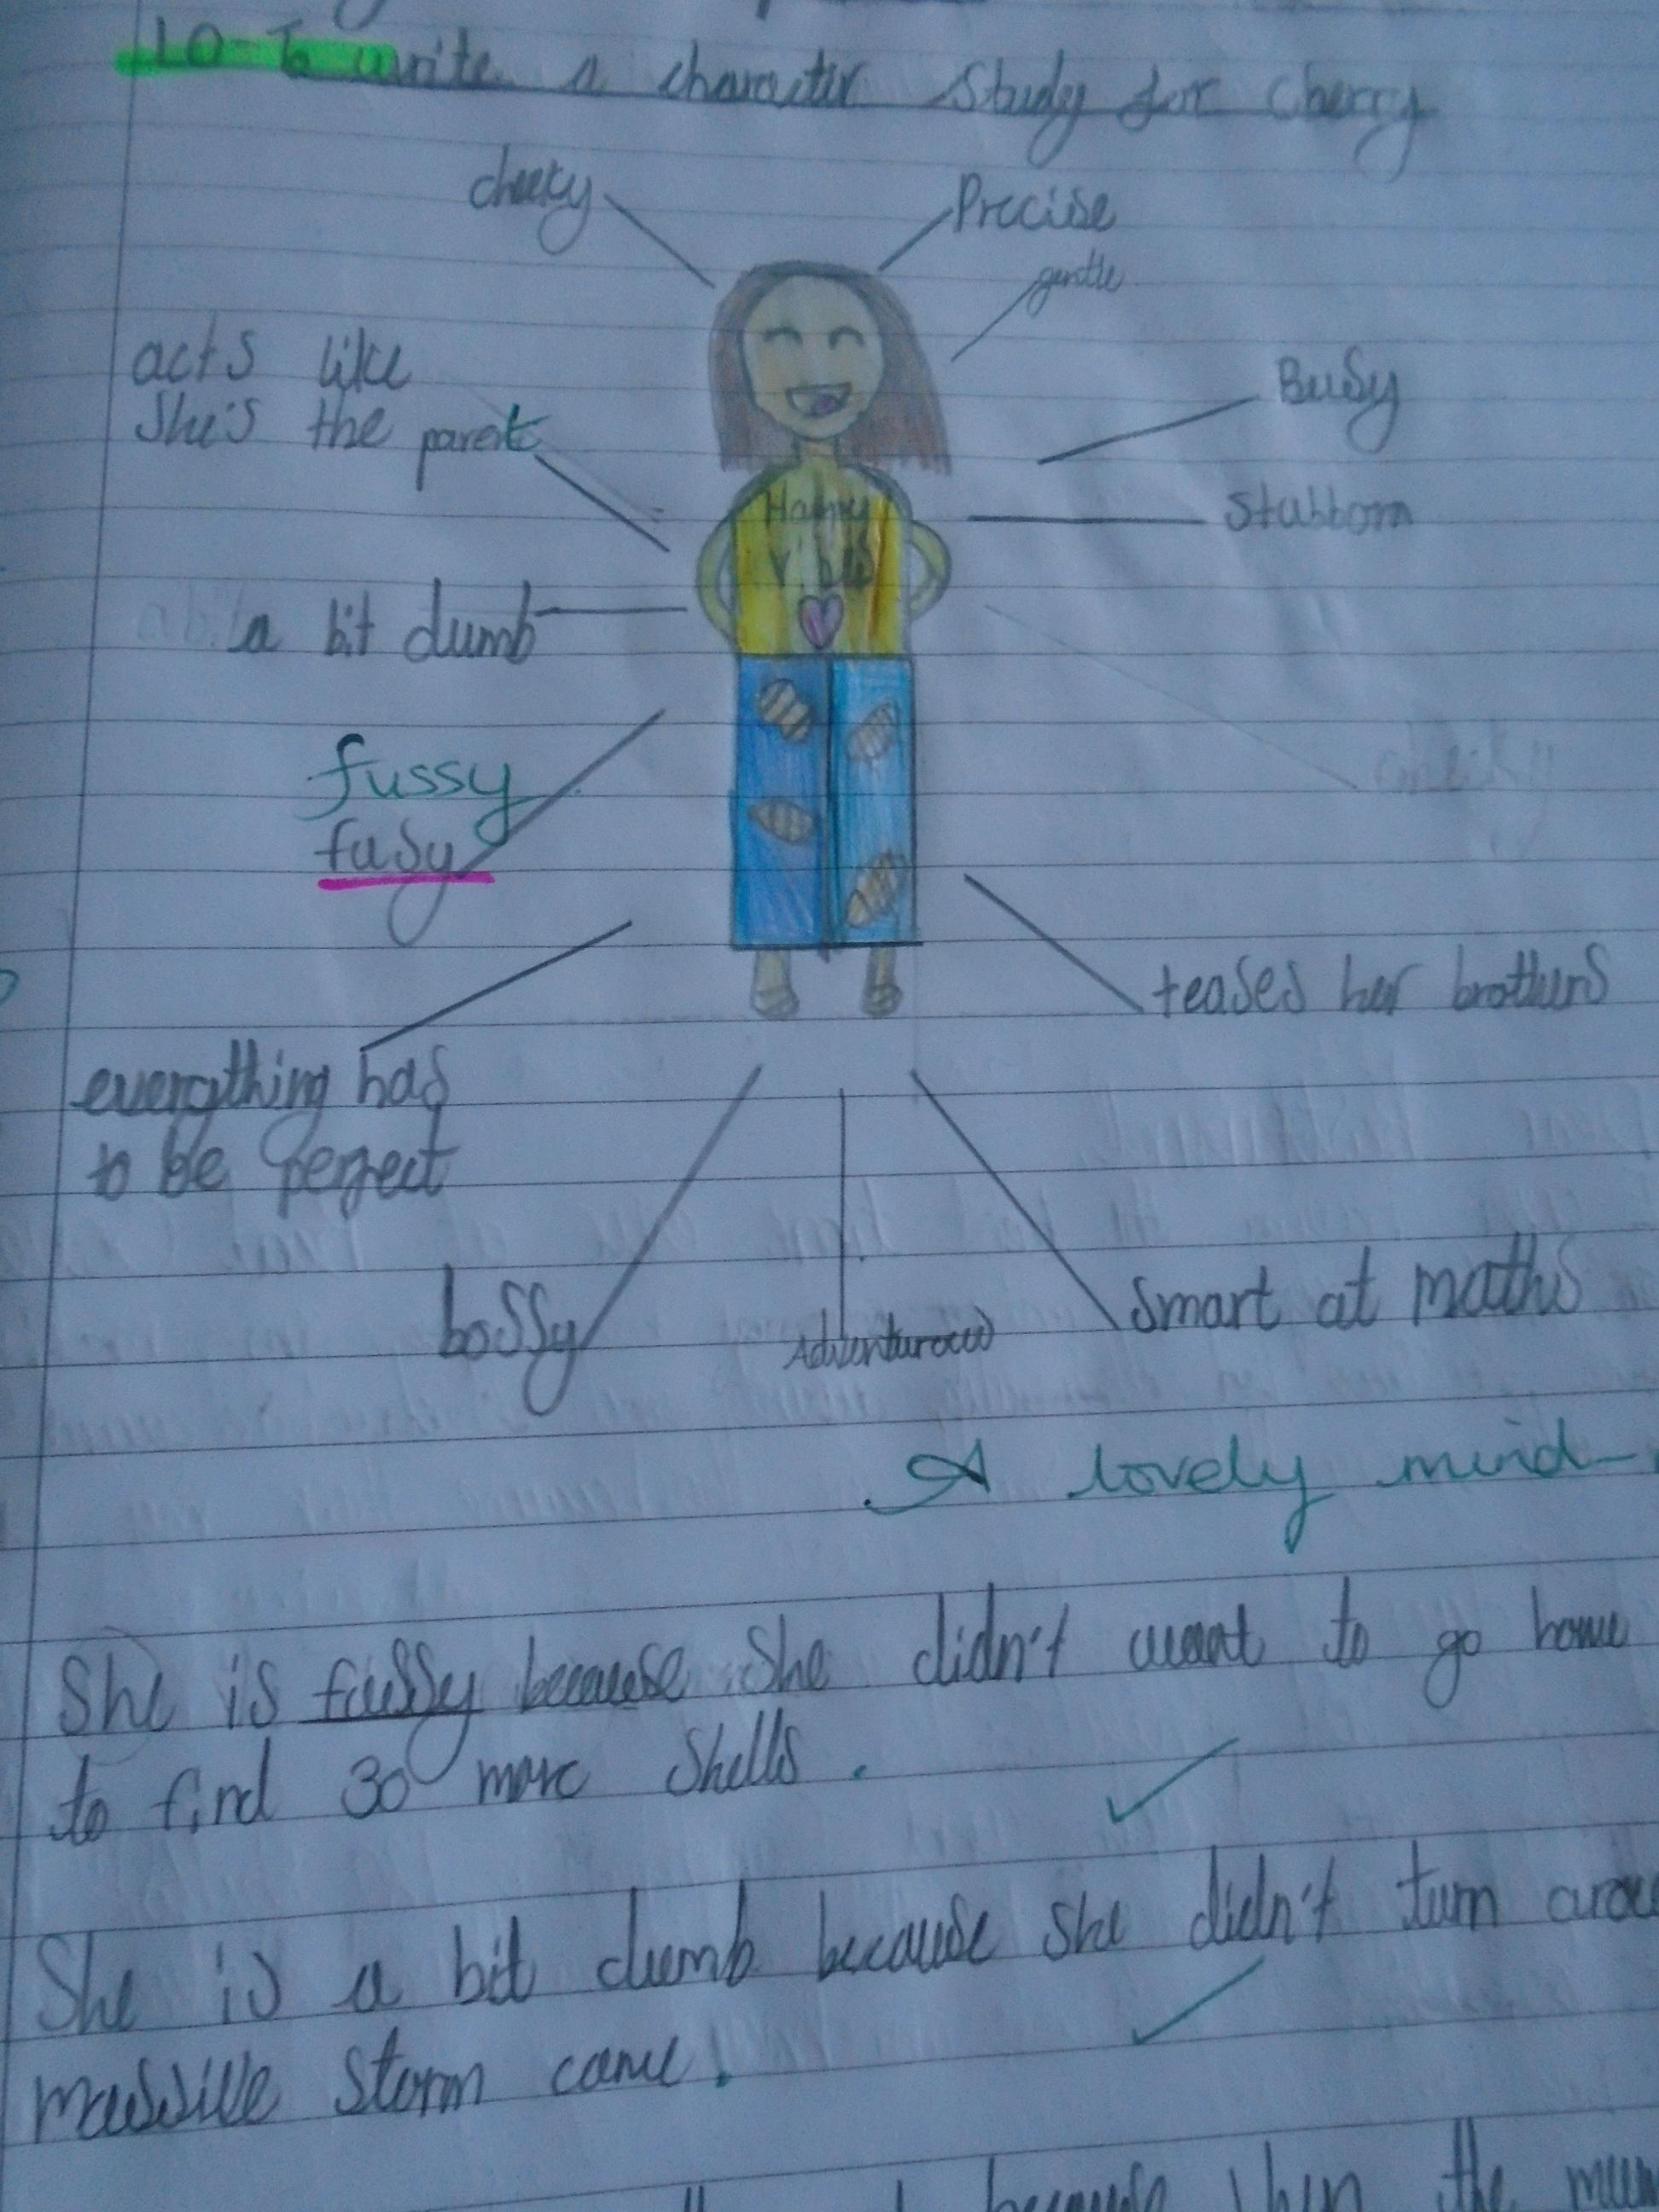 LO-To write a character study for Cherry
cheeky
Precise
gentle
acts like
she's the parent
Busy
stubborn
Happy
Vibes
a bit dumb
fussy
fusy
teases her brothers
everything has
to be perfect
bossy
Adventurous
smart at maths
A lovely mind-
She is fussy because she didn't want to go home
to find 30 more shells.
She is a bit dumb because she didn't turn
massive storm came.
because when the